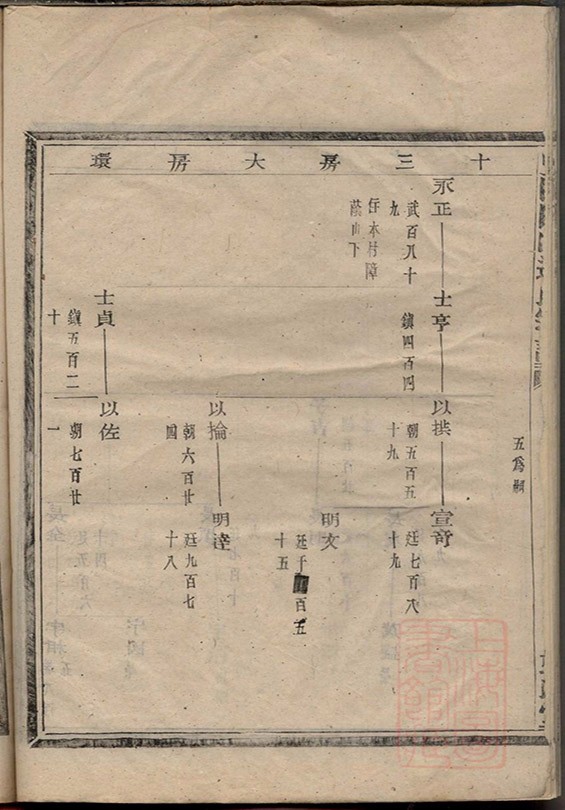 五為嗣
十三房大房環
永正
武百八十九
住本村障蔭山下
士亨
鎮四百四
以拱
朝五百五十九
宣奇
廷七百六十九
明文
廷千百五十五
以掄
朝六百廿四
明達
廷九百七十八
士貞
鎮五百二十
以佐
朝七百廿一